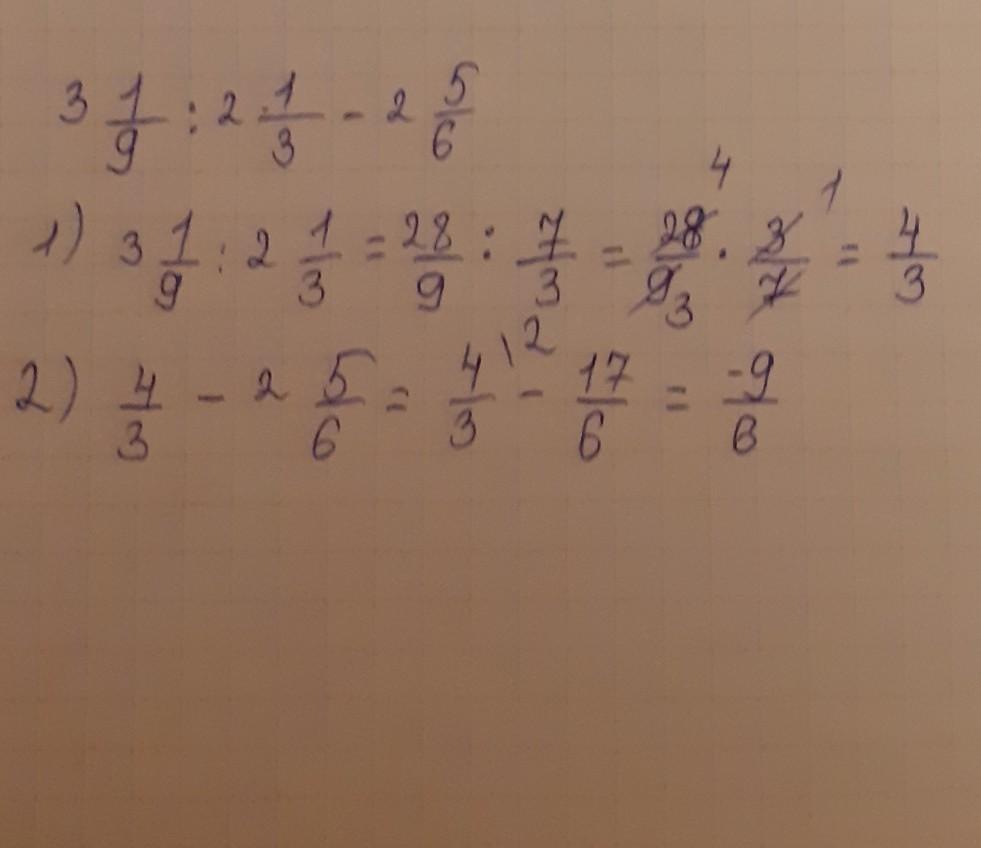 3 1/9 : 2 1/3 - 2 5/6
1) 3 1/9 : 2 1/3 = 28/9 : 7/3 = 28/9 4 3 · 3/7 1 = 4/3
2) 4/3 - 2 5/6 = 4/3 \2 - 17/6 = -9/6